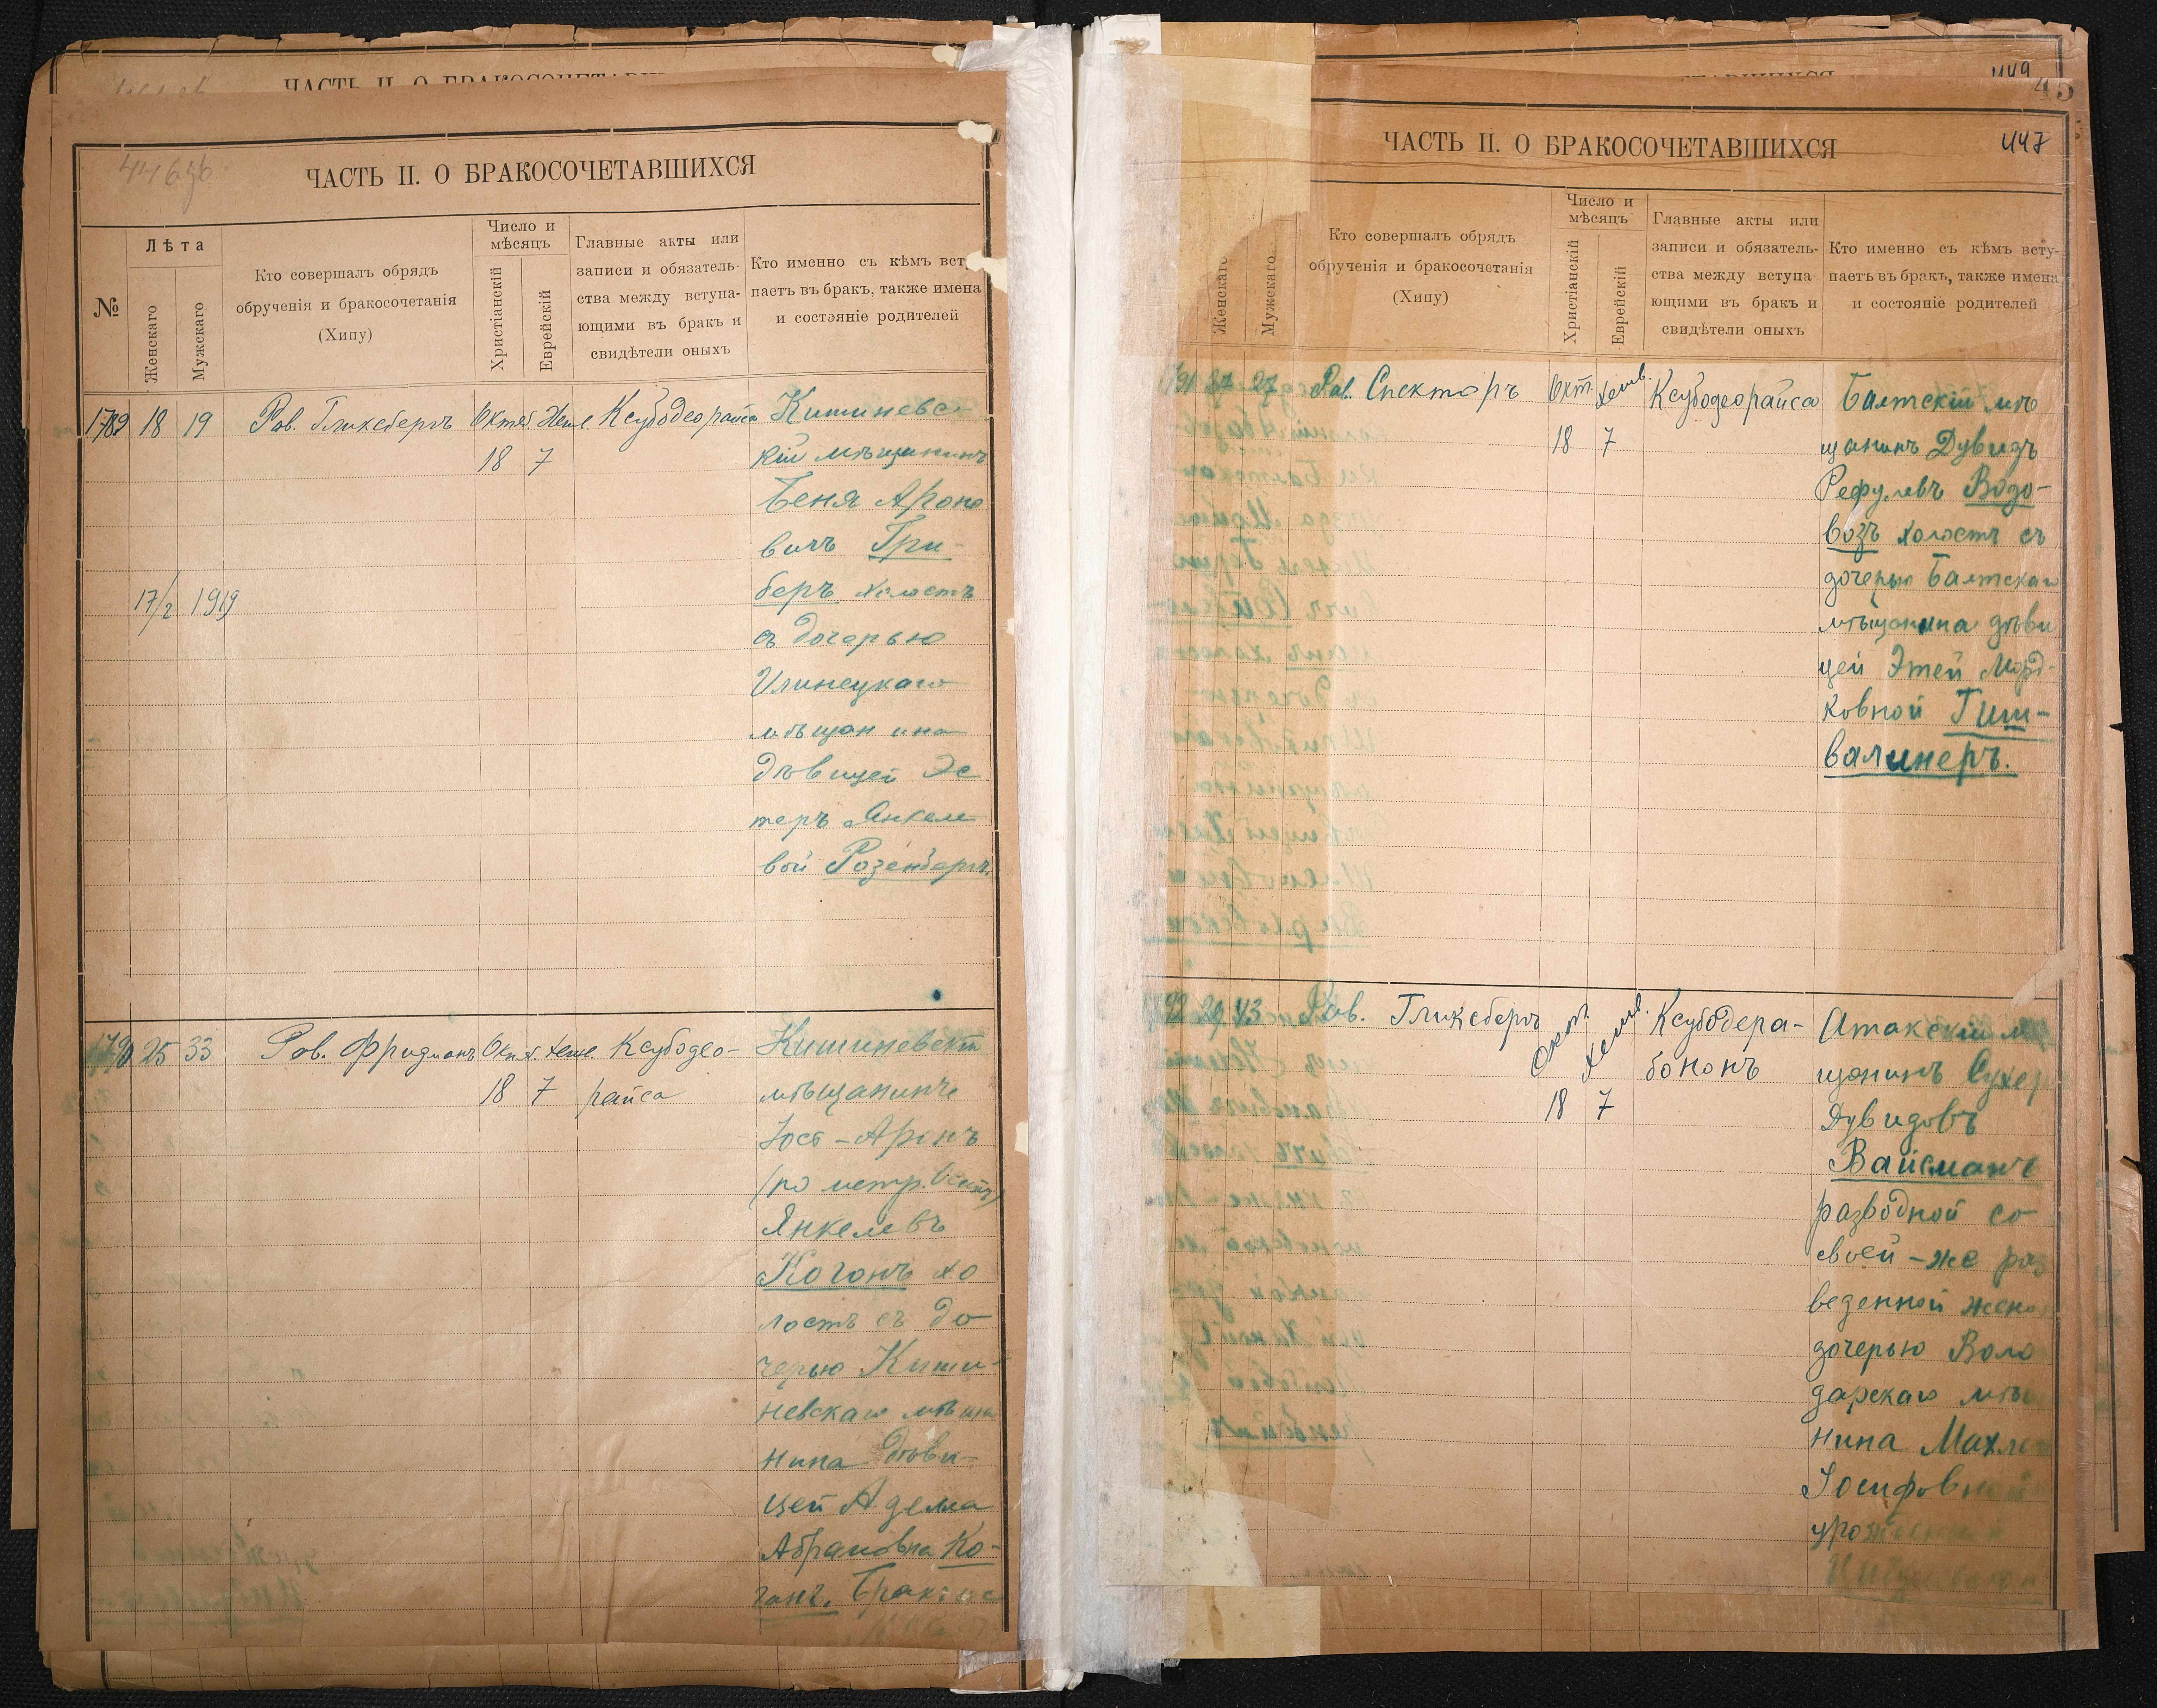 ЧАСТЬ II. О БРАКОСОЧЕТАВШИХСЯ
№
Лѣта
Женскаго
Мужскаго
Кто совершалъ обрядъ
обрученія и бракосочетанія
(Хипу)
Число и
мѣсяцъ
Христіанскій
Еврейскій
Главные акты или
записи и обязатель-
ства между вступа-
ющими въ бракъ и
свидѣтели оныхъ
Кто именно съ кѣмъ вст
паетъ въ бракъ, также имена
и состояніе родителей
1789 18 19 Рав. Гликсбергъ Октяб. Хешв. Ксубодеорайса Кишиневс-
18 7 кій мѣщанинъ
Беня Ароно
вичъ Гри-
беръ холостъ
17/2 1919
съ дочерью
Илинецкаго
мѣщанина
дѣвицей Эс
теръ Янкеле
вой Розенбергъ.
1790 25 33 Рав. Фридманъ Окт. Хешв. Ксубодео- Кишиневскій
18 7 райса мѣщанинъ
Іось-Аронъ
(по метр.
Янкелевъ
Коганъ хо
лостъ съ до
черью Киши-
невскаго мѣща
нина дѣви-
цей Аделиа
Абрамовна Ко-
ганъ.
449
45
447
ЧАСТЬ II. О БРАКОСОЧЕТАВШИХСЯ
Женскаго
Мужскаго
Кто совершалъ обрядъ
обрученія и бракосочетанія
(Хипу)
Число и
мѣсяцъ
Христіанскій
Еврейскій
Главные акты или
записи и обязатель-
ства между вступа
ющими въ бракъ и
свидѣтели оныхъ
Кто именно съ кѣмъ всту-
паетъ въ бракъ, также имена
и состояніе родителей
27 27 Рав. Спекторъ Окт. Хешв. Ксубодеорайса Балтскій мѣ
18 7 щанинъ Дувидъ
Рефулевъ Водо-
возъ холостъ съ
дочерью Балтскаго
мѣщанина дѣви
цей Этей Морд-
ковной Гиш-
валинеръ.
29 43 Рав. Гликсбергъ Окт. Хешв. Ксубодера- Атакскій м
18 7 бононъ щанинъ Сухер
Дувидовъ
Вайсманъ
разводной со
своей-же раз
веденной жено
дочерью Воло
дарскаго мѣщ
нина Махле
Іосифовн
урожденной